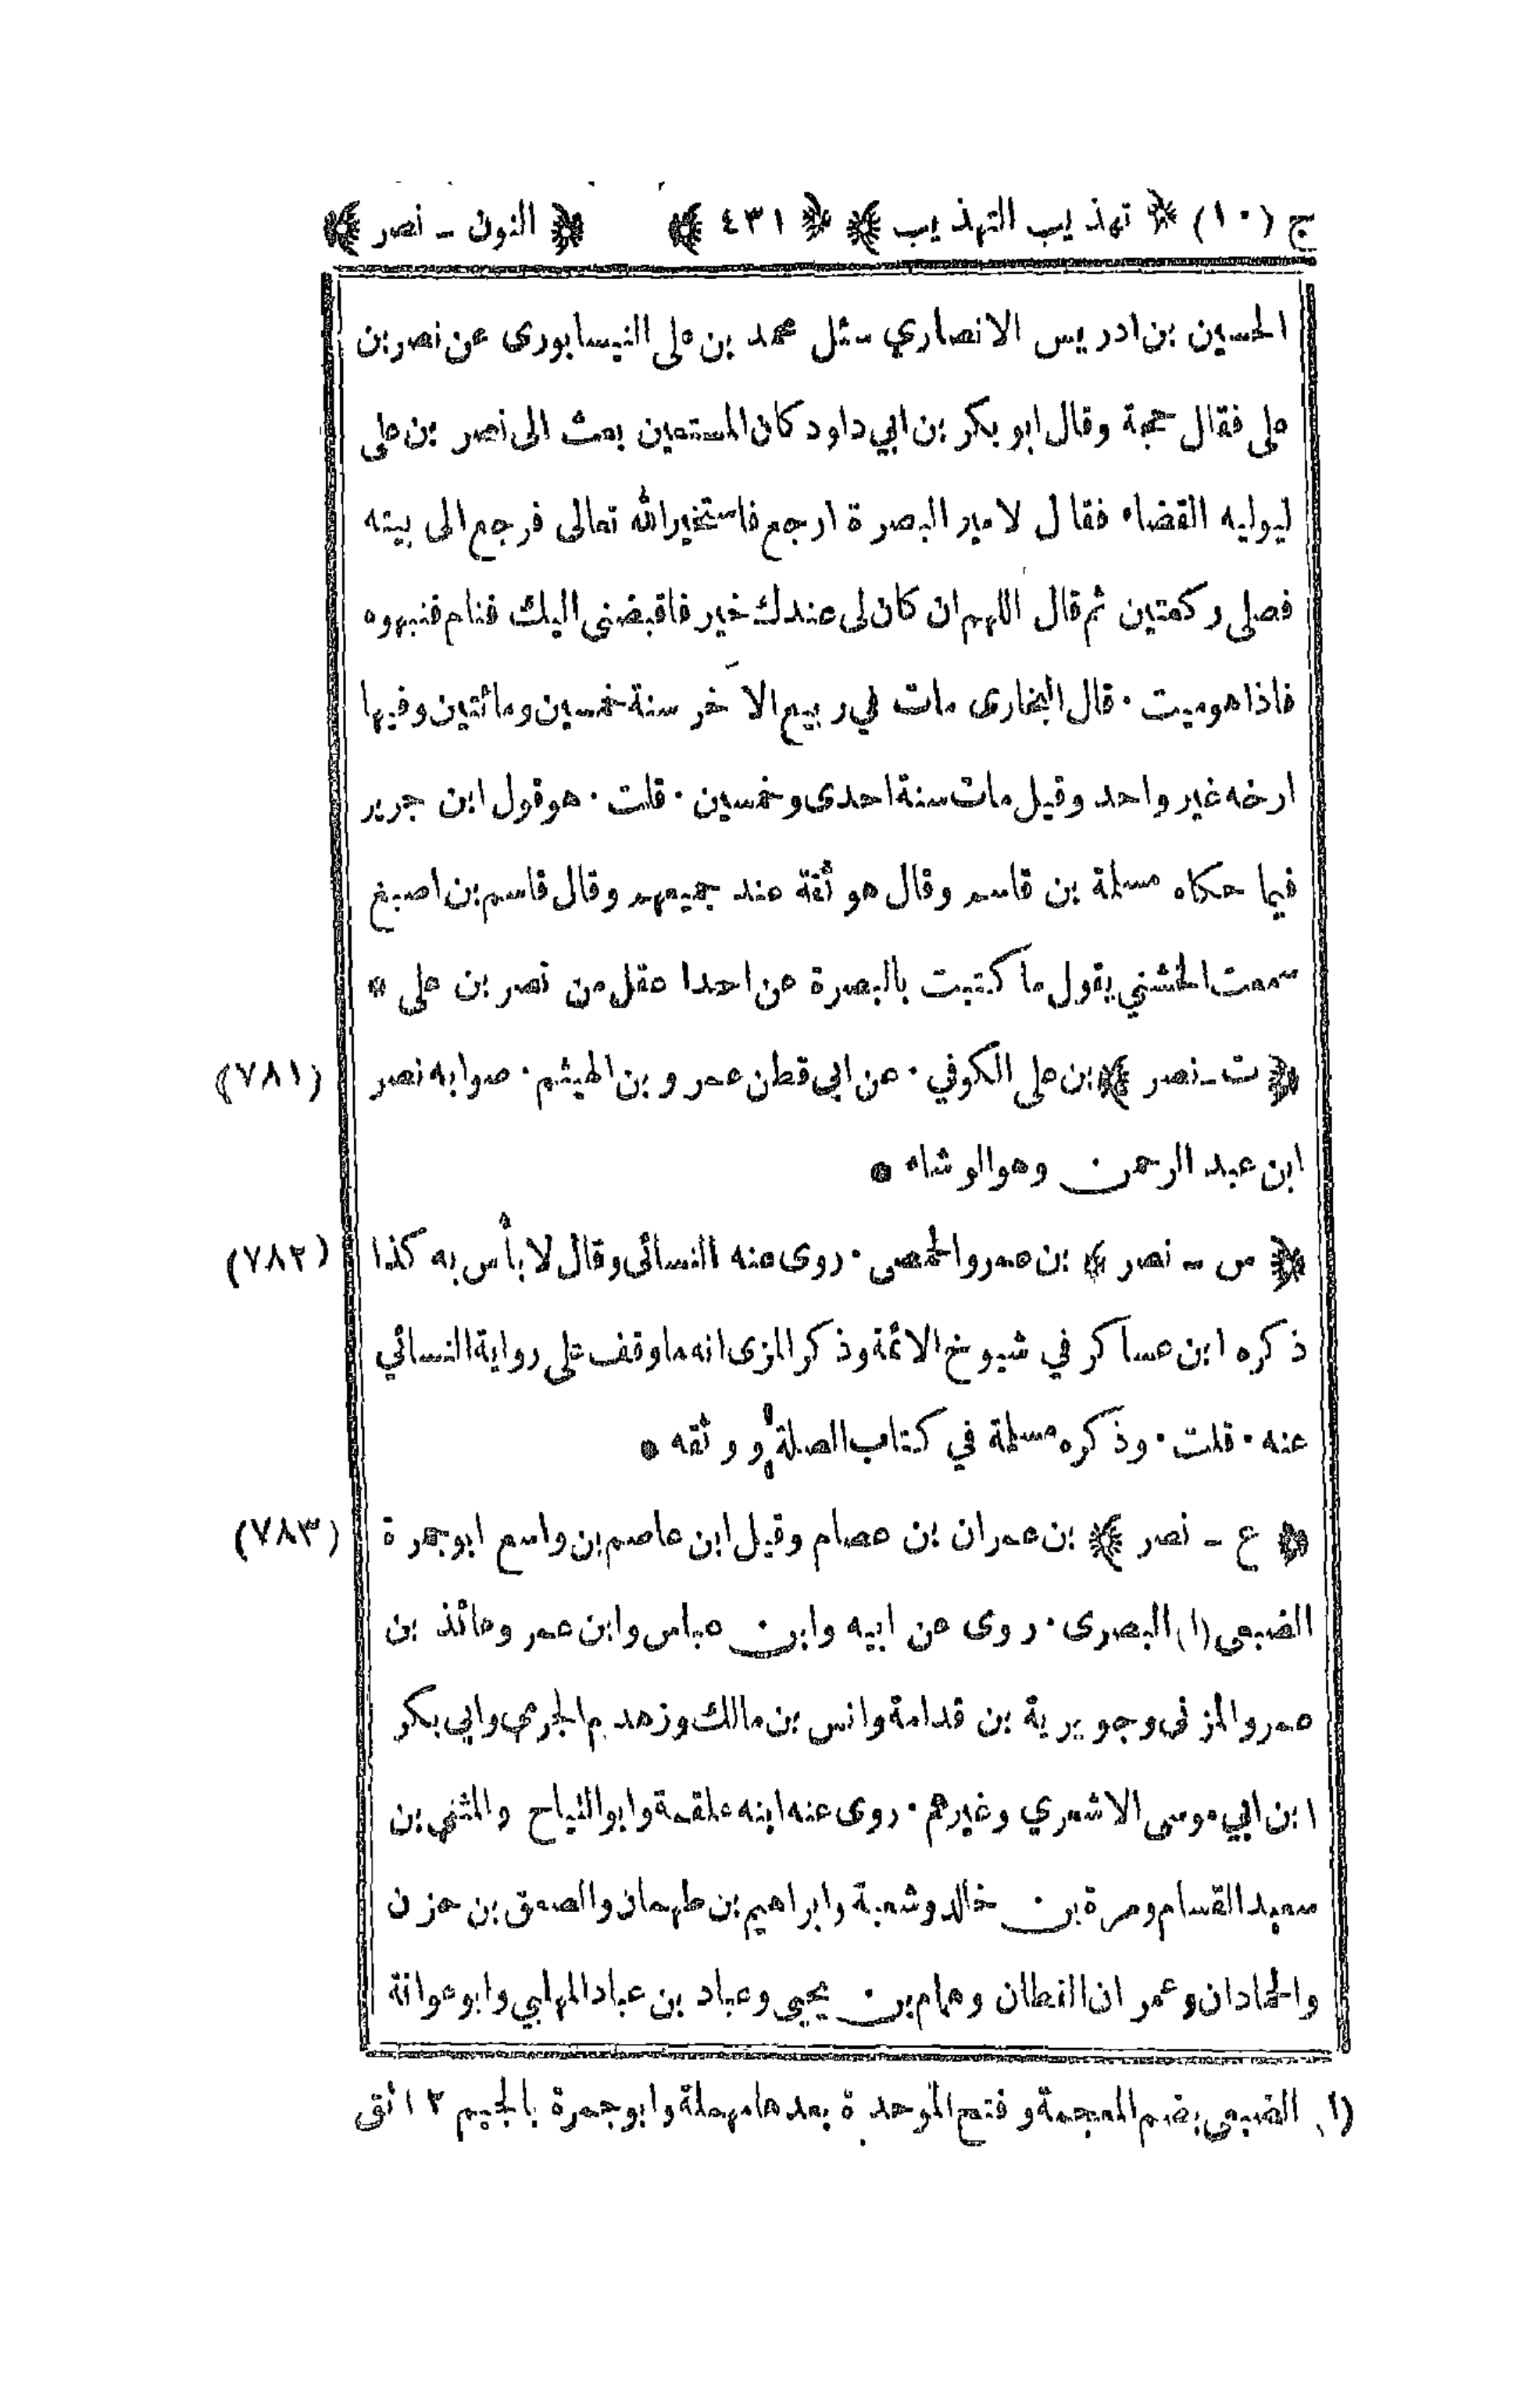 ج (١٠) ﴿ تهذيب التهذيب ﴾ ﴿ ٤٣١ ﴾ ﴿ النون - نصر ﴾
الحسين بن ادريس الانصاري سئل محمد بن على النيسابورى عن نصر بن
على فقال حجة وقال ابو بكر بن ابي داود كان المستعين بعث الى نصر بن على
ليوليه القضاء فقال لامير البصرة ارجع فاستخير الله تعالى فرجع الى بيته
فصلى ركعتين ثم قال اللهم ان كان لى عندك خير فاقبضنى اليك فنام فنبهوه
فاذا هو ميت · قال البخارى مات في ربيع الآخر سنة خمسين ومائتين وفيها
ارخه غير واحد وقيل مات سنة احدى وخمسين · قلت · هو قول ابن جرير
فيما حكاه مسلمة بن قاسم وقال هو ثقة عند جميعهم وقال قاسم بن اصبغ
سمعت الخشني يقول ما كتبت بالبصرة عن احد اعقل من نصر بن على *
﴿ ت - نصر ﴾ بن على الكوفي · عن ابى قطن عمرو بن الهيثم · صوابه نصر (٧٨١)
ابن عبد الرحمن وهو الوشاء *
﴿ س - نصر ﴾ بن عمرو الحمصى · روى عنه النسائى وقال لا بأس به كذا (٧٨٢)
ذكره ابن عساكر في شيوخ الائمة وذكر المزى انه ما وقف على رواية النسائي
عنه · قلت · وذكره مسلمة في كتاب الصلة و وثقه *
﴿ ع - نصر ﴾ بن عمران بن عصام وقيل ابن عاصم بن واسع ابو جمرة (٧٨٣)
الضبعى (١) البصرى · روى عن ابيه وابن عباس وابن عمر وعائذ بن
عمرو المزنى وجويرية بن قدامة وانس بن مالك وزهدم الجرمي وابي بكر
ابن ابي موسى الاشعري وغيرهم · روى عنه ابنه علقمة وابو التياح والمثنى بن
سعيد القسام ومرة بن خالد وشعبة وابراهيم بن طهمان والصعق بن حزن
والحمادان وعمران القطان وهمام بن يحيى وعباد بن عباد المهلبي وابو عوانة
(١) الضبعى بضم المعجمة وفتح الموحدة بعدها مهملة وابو جمرة بالجيم ١٢ تق